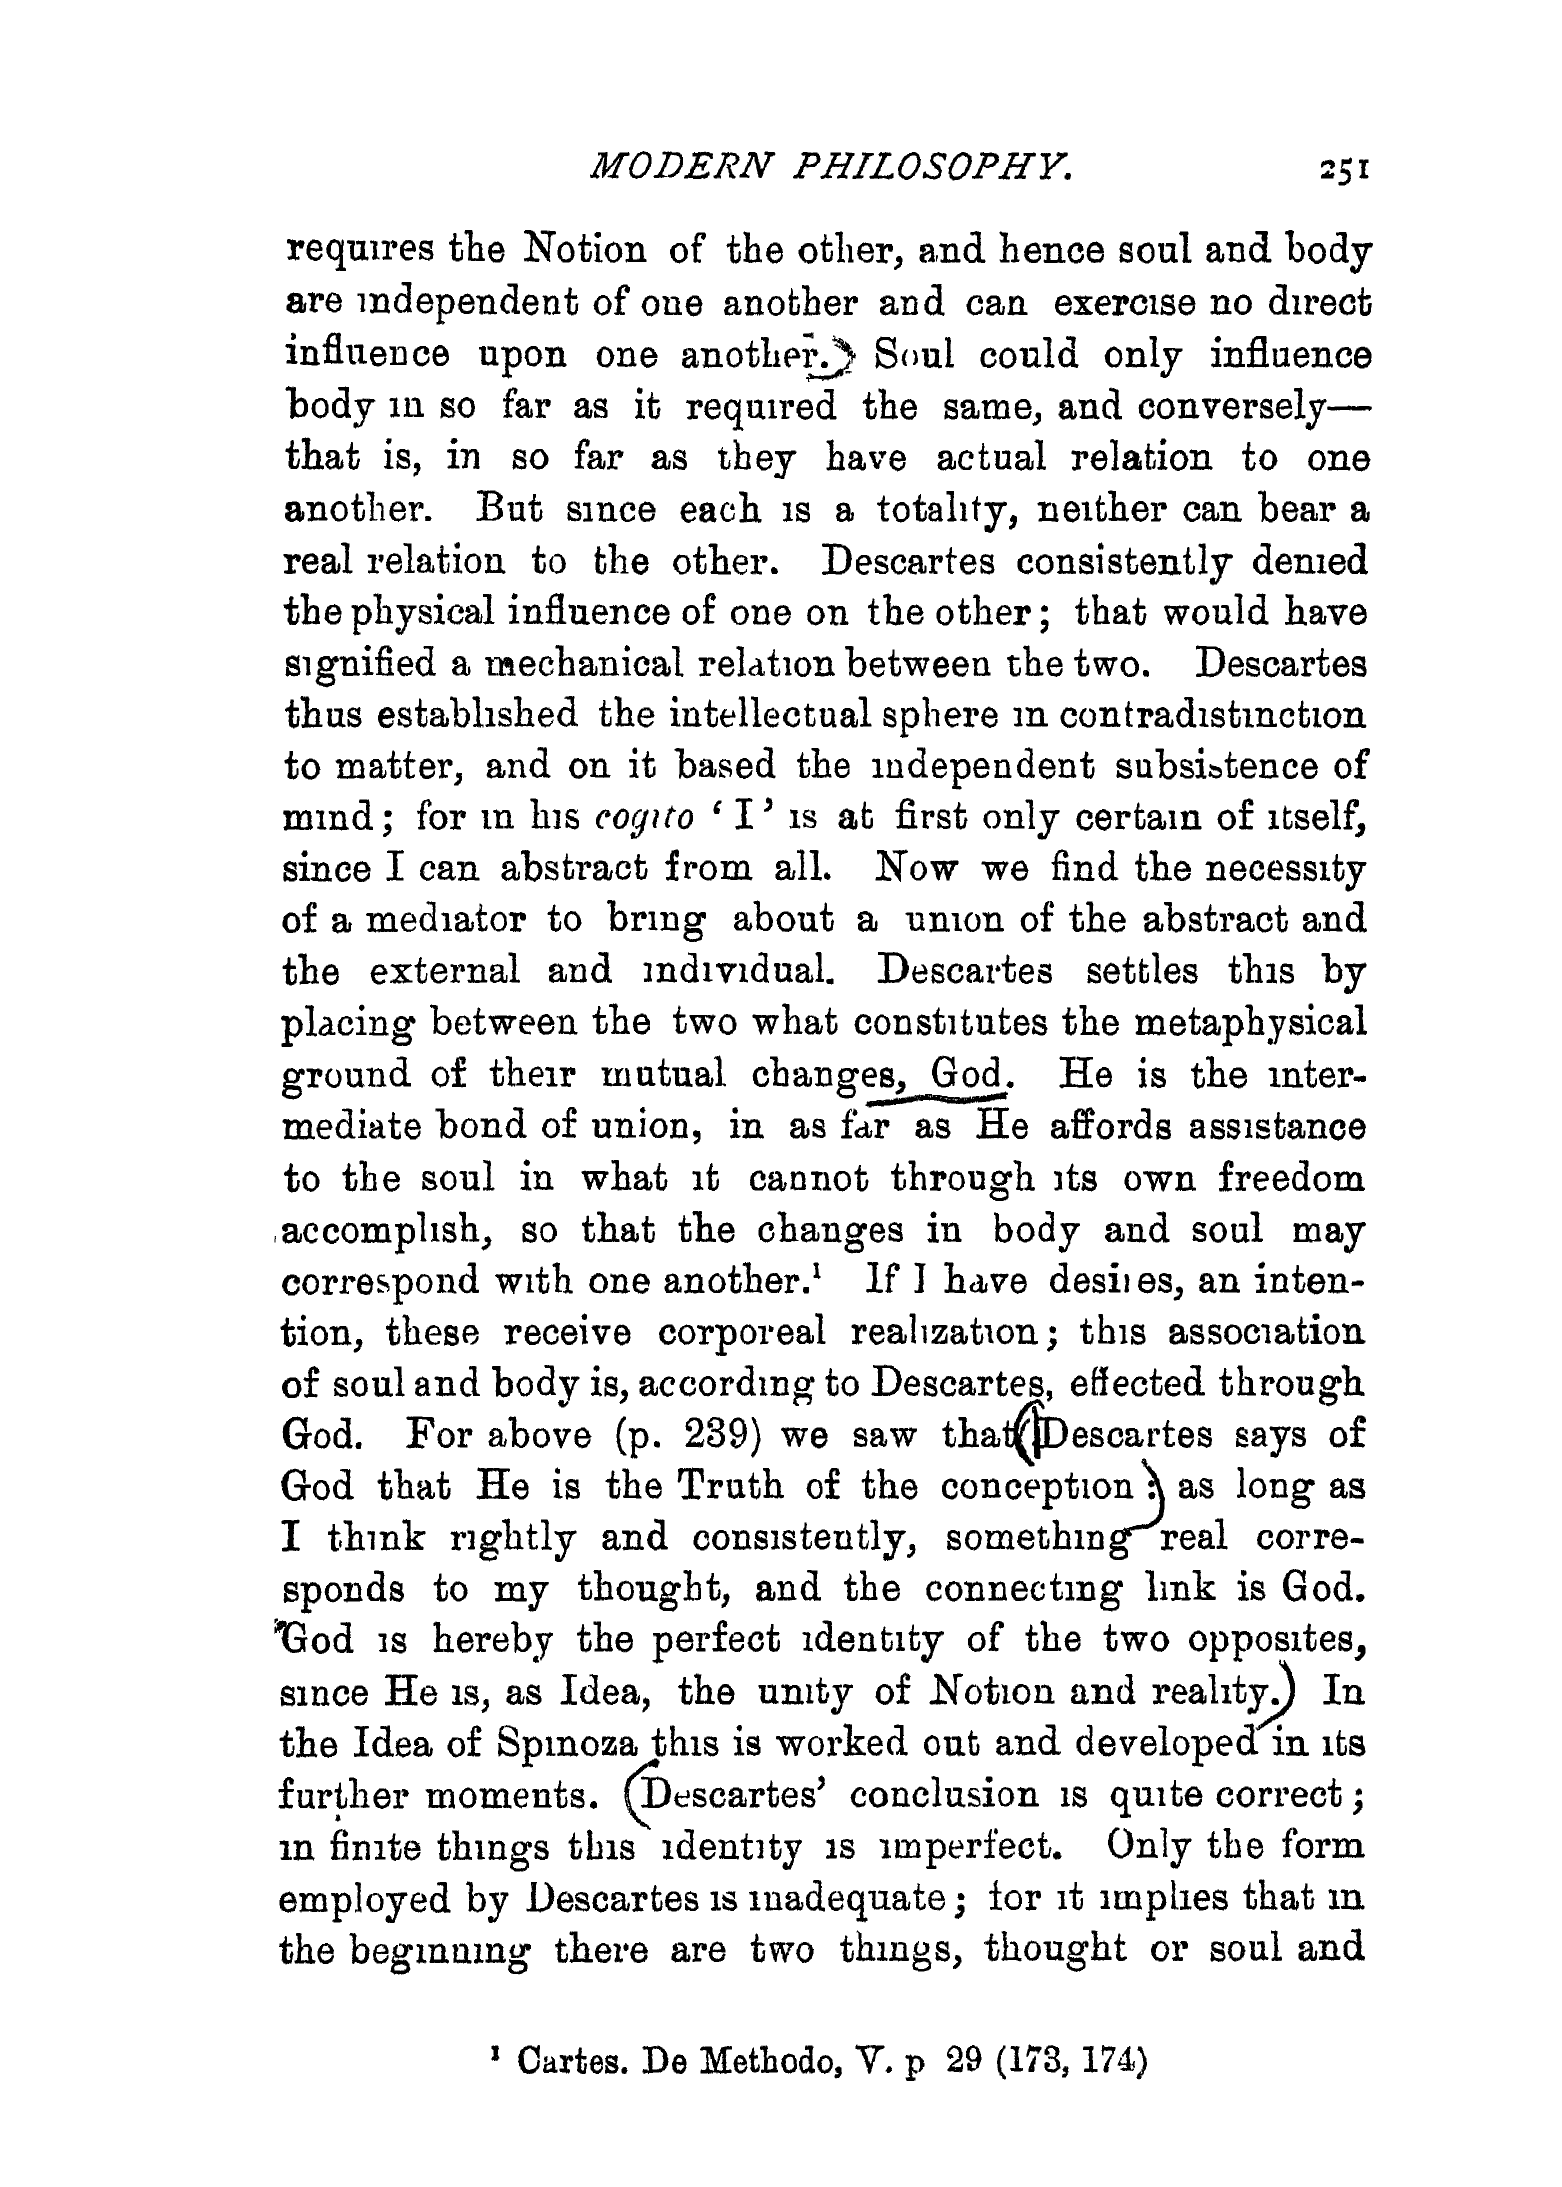 MODERN PHILOSOPHY. 251
requires the Notion of the other, and hence soul and body
are independent of one another and can exercise no direct
influence upon one another. Soul could only influence
body in so far as it required the same, and conversely—
that is, in so far as they have actual relation to one
another. But since each is a totality, neither can bear a
real relation to the other. Descartes consistently denied
the physical influence of one on the other; that would have
signified a mechanical relation between the two. Descartes
thus established the intellectual sphere in contradistinction
to matter, and on it based the independent subsistence of
mind; for in his cogito ‘I’ is at first only certain of itself,
since I can abstract from all. Now we find the necessity
of a mediator to bring about a union of the abstract and
the external and individual. Descartes settles this by
placing between the two what constitutes the metaphysical
ground of their mutual changes, God. He is the inter-
mediate bond of union, in as far as He affords assistance
to the soul in what it cannot through its own freedom
accomplish, so that the changes in body and soul may
correspond with one another.¹ If I have desires, an inten-
tion, these receive corporeal realization; this association
of soul and body is, according to Descartes, effected through
God. For above (p. 239) we saw that Descartes says of
God that He is the Truth of the conception: as long as
I think rightly and consistently, something real corre-
sponds to my thought, and the connecting link is God.
God is hereby the perfect identity of the two opposites,
since He is, as Idea, the unity of Notion and reality. In
the Idea of Spinoza this is worked out and developed in its
further moments. Descartes’ conclusion is quite correct;
in finite things this identity is imperfect. Only the form
employed by Descartes is inadequate; for it implies that in
the beginning there are two things, thought or soul and
¹ Cartes. De Methodo, V. p 29 (173, 174)